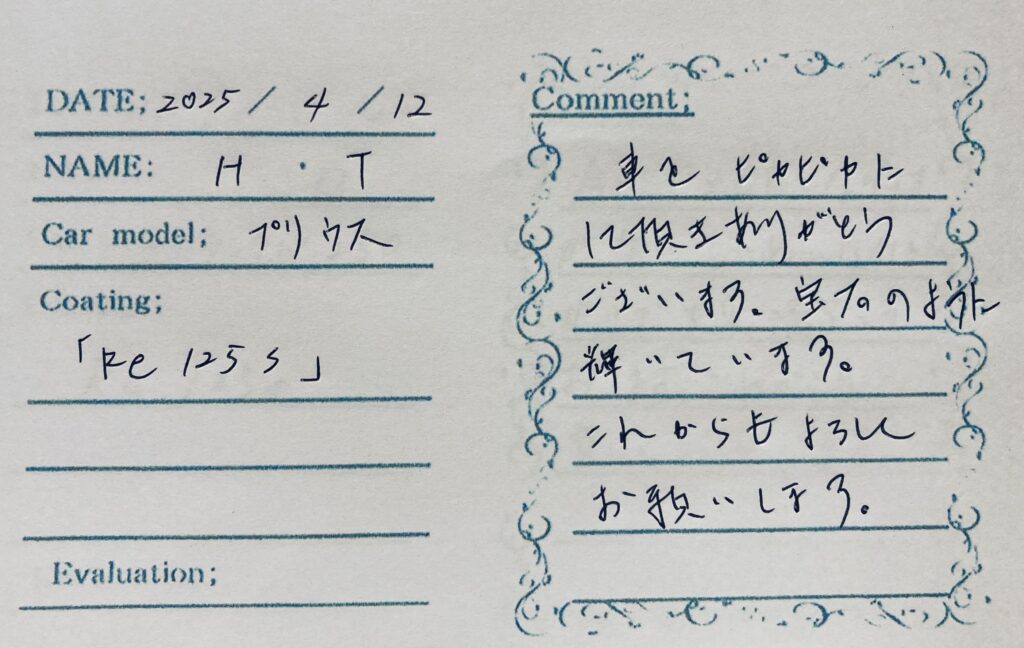 DATE; 2025 / 4 / 12
NAME: H ・ T
Car model; プリウス
Coating;
「Re 125 S」
Evaluation;
Comment;
車を ピカピカに
に頂きありがとう
ございます。宝石のように
輝いています。
これからもよろしく
お願いします。